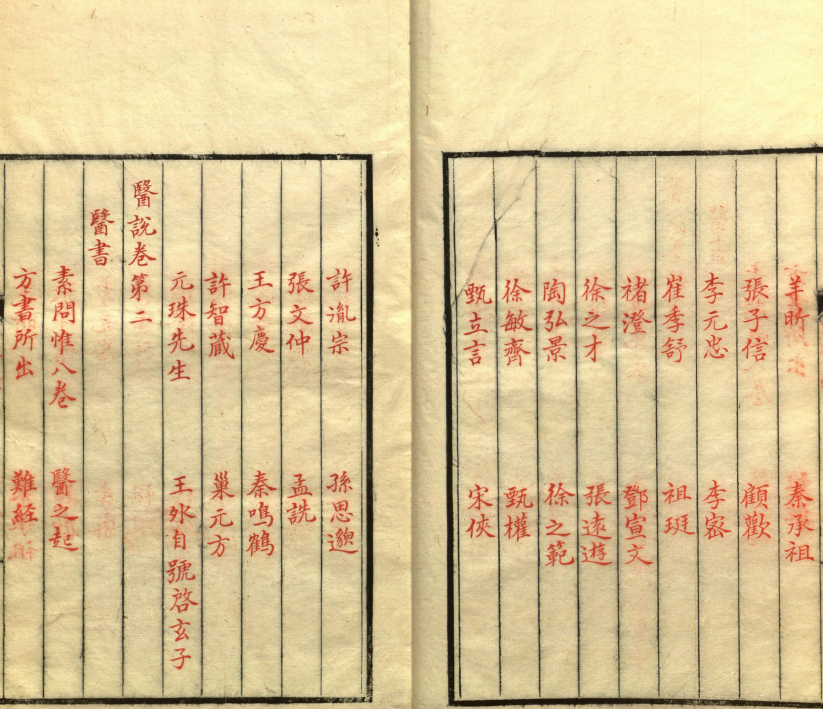 羊昕 秦承祖
張子信 顧歡
李元忠 李密
崔季舒 祖珽
禇澄 鄧宣文
徐之才 張遠遊
陶弘景 徐之範
徐敏齊 甄權
甄立言 宋俠
許胤宗 孫思邈
張文仲 孟詵
王方慶 秦鳴鶴
許智藏 巢元方
元珠先生 王氷自號啓玄子
醫說卷第二
醫書
素問惟八卷 醫之起
方書所出 難経